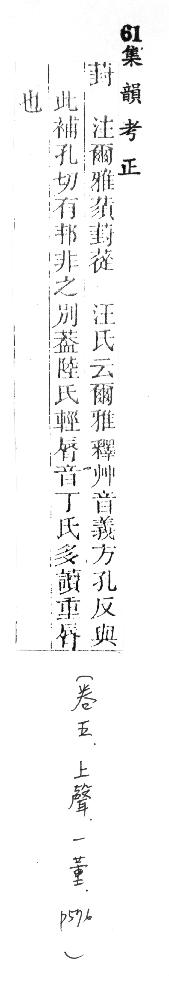 61集韻考正
葑　注爾雅須葑蓯　汪氏云爾雅釋艸音義方孔反與
此補孔切有邦非之別葢陸氏輕脣音丁氏多讀重脣
也
(卷五.上聲.一董.p576)